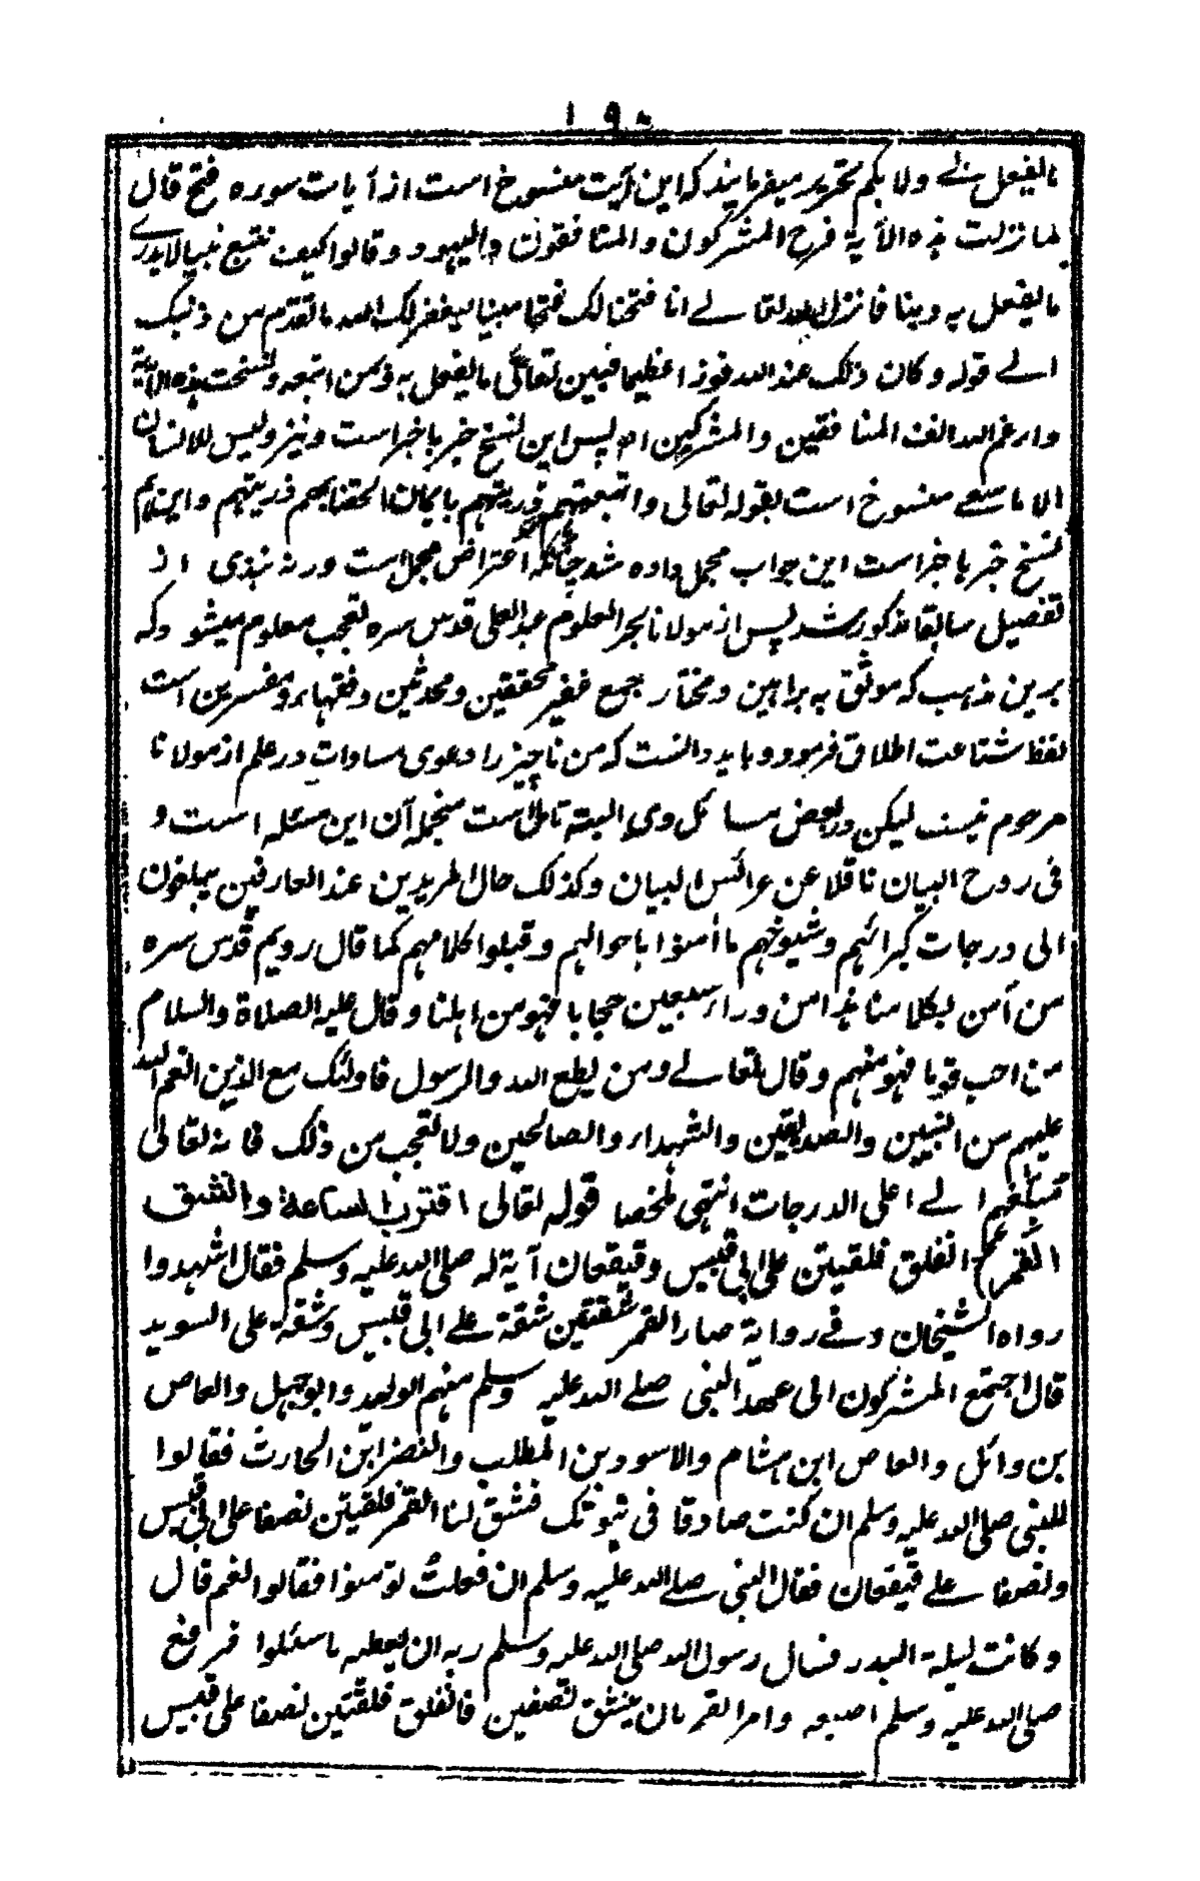 ١٩٠
ما یفعل بی ولا بکم تحریر میفرمایند که این آیت منسوخ است از آیات سوره فتح قال
لما نزلت هذه الآیة فرح المشرکون والمنافقون والیهود وقالوا کیف نتبع نبیا لا یدری
ما یفعل به وبنا فانزل الله تعالے انا فتحنا لک فتحا مبینا لیغفر لک الله ما تقدم من ذنبک
الے قوله وکان ذلک عند الله فوزا عظیما فبین تعالی ما یفعل به وبمن اتبعه ونسخت هذه الآیة
وارغم الله انف المنافقین والمشرکین اه پس این نسخ خبر باخبر است ونیز ولیس للانسان
الا ما سعے منسوخ است بقوله تعالی واتبعتهم ذریتهم بایمان الحقنا بهم ذریتهم واین هم
نسخ خبر باخبر است این جواب مجمل داده شد چنانکه اعتراض مجمل است ورنه نبذی از
تفصیل سابقا مذکور شد پس از مولانا بحر العلوم عبد العلی قدس سره تعجب معلوم میشو دکه
برین مذهب که موثق به براهین ومختار جمع غفیر محققین ومحدثین وفقهاء ومفسرین است
لفظ شناعت اطلاق فرمود وباید دانست که من ناچیز را دعوی مساوات در علم از مولانا
مرحوم نیست لیکن در بعض مسائل وی البته تامل است منجمله آن این مسئله است و
فی روح البیان ناقلا عن عرائس البیان وکذلک حال المریدین عند العارفین یبلغون
الی درجات کبرائهم وشیوخهم ما امنوا باحوالهم وقبلوا کلامهم کما قال رویم قدس سره
من آمن بکلامنا هذا من وراء سبعین حجابا فهو من اهلنا وقال علیه الصلاة والسلام
من احب قوما فهو منهم وقال تعالے ومن یطع الله والرسول فاولئک مع الذین انعم الله
علیهم من النبیین والصدیقین والشهداء والصالحین ولا تعجب من ذلک فانه تعالی
مبلغهم الے اعلی الدرجات انتهی ملخصا قوله تعالی اقتربت الساعة وانشق
القمر انفلق فلقتین علی ابی قبیس وقیقعان آیة له صلی الله علیه وسلم فقال اشهدوا
رواه الشیخان وفے روایة صار القمر شقتین شقة علے ابی قبیس وشقة علی السوید
قال اجتمع المشرکون الی عهد النبی صلے الله علیه وسلم منهم الولید وابو جهل والعاص
بن وائل والعاص ابن هشام والاسود بن المطلب والنضر ابن الحارث فقالوا
للنبی صلی الله علیه وسلم ان کنت صادقا فی نبوتک فشق لنا القمر فلقتین نصفا علی ابی قبیس
ونصفا علے قیقعان فقال النبی صلے الله علیه وسلم ان فعلت تؤمنوا فقالوا نعم قال
وکانت لیلة البدر فسال رسول الله صلی الله علیه وسلم ربه ان یعطیه ما سئلوا فرفع
صلی الله علیه وسلم اصبعه وامر القمر بان ینشق نصفین فانفلق فلقتین نصفا علی قبیس